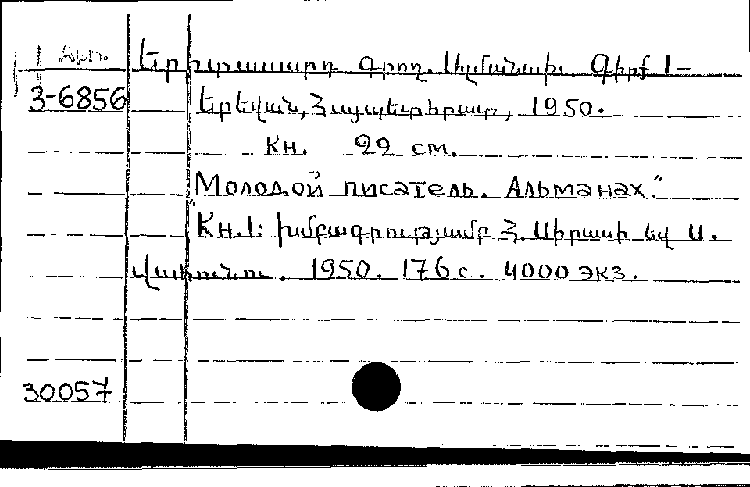 Арм.
Երիտասարդ գրող. Ալմանախ. Գիրք 1-
3-6856
Երևան, Հայպետհրատ, 1950.
Кн. 22 см.
"Молодой писатель. Альманах."
Кн.1: խմբագրությամբ Հ. Սիրասի եվ Ա.
1950. 176 с. 4000 экз.
30057